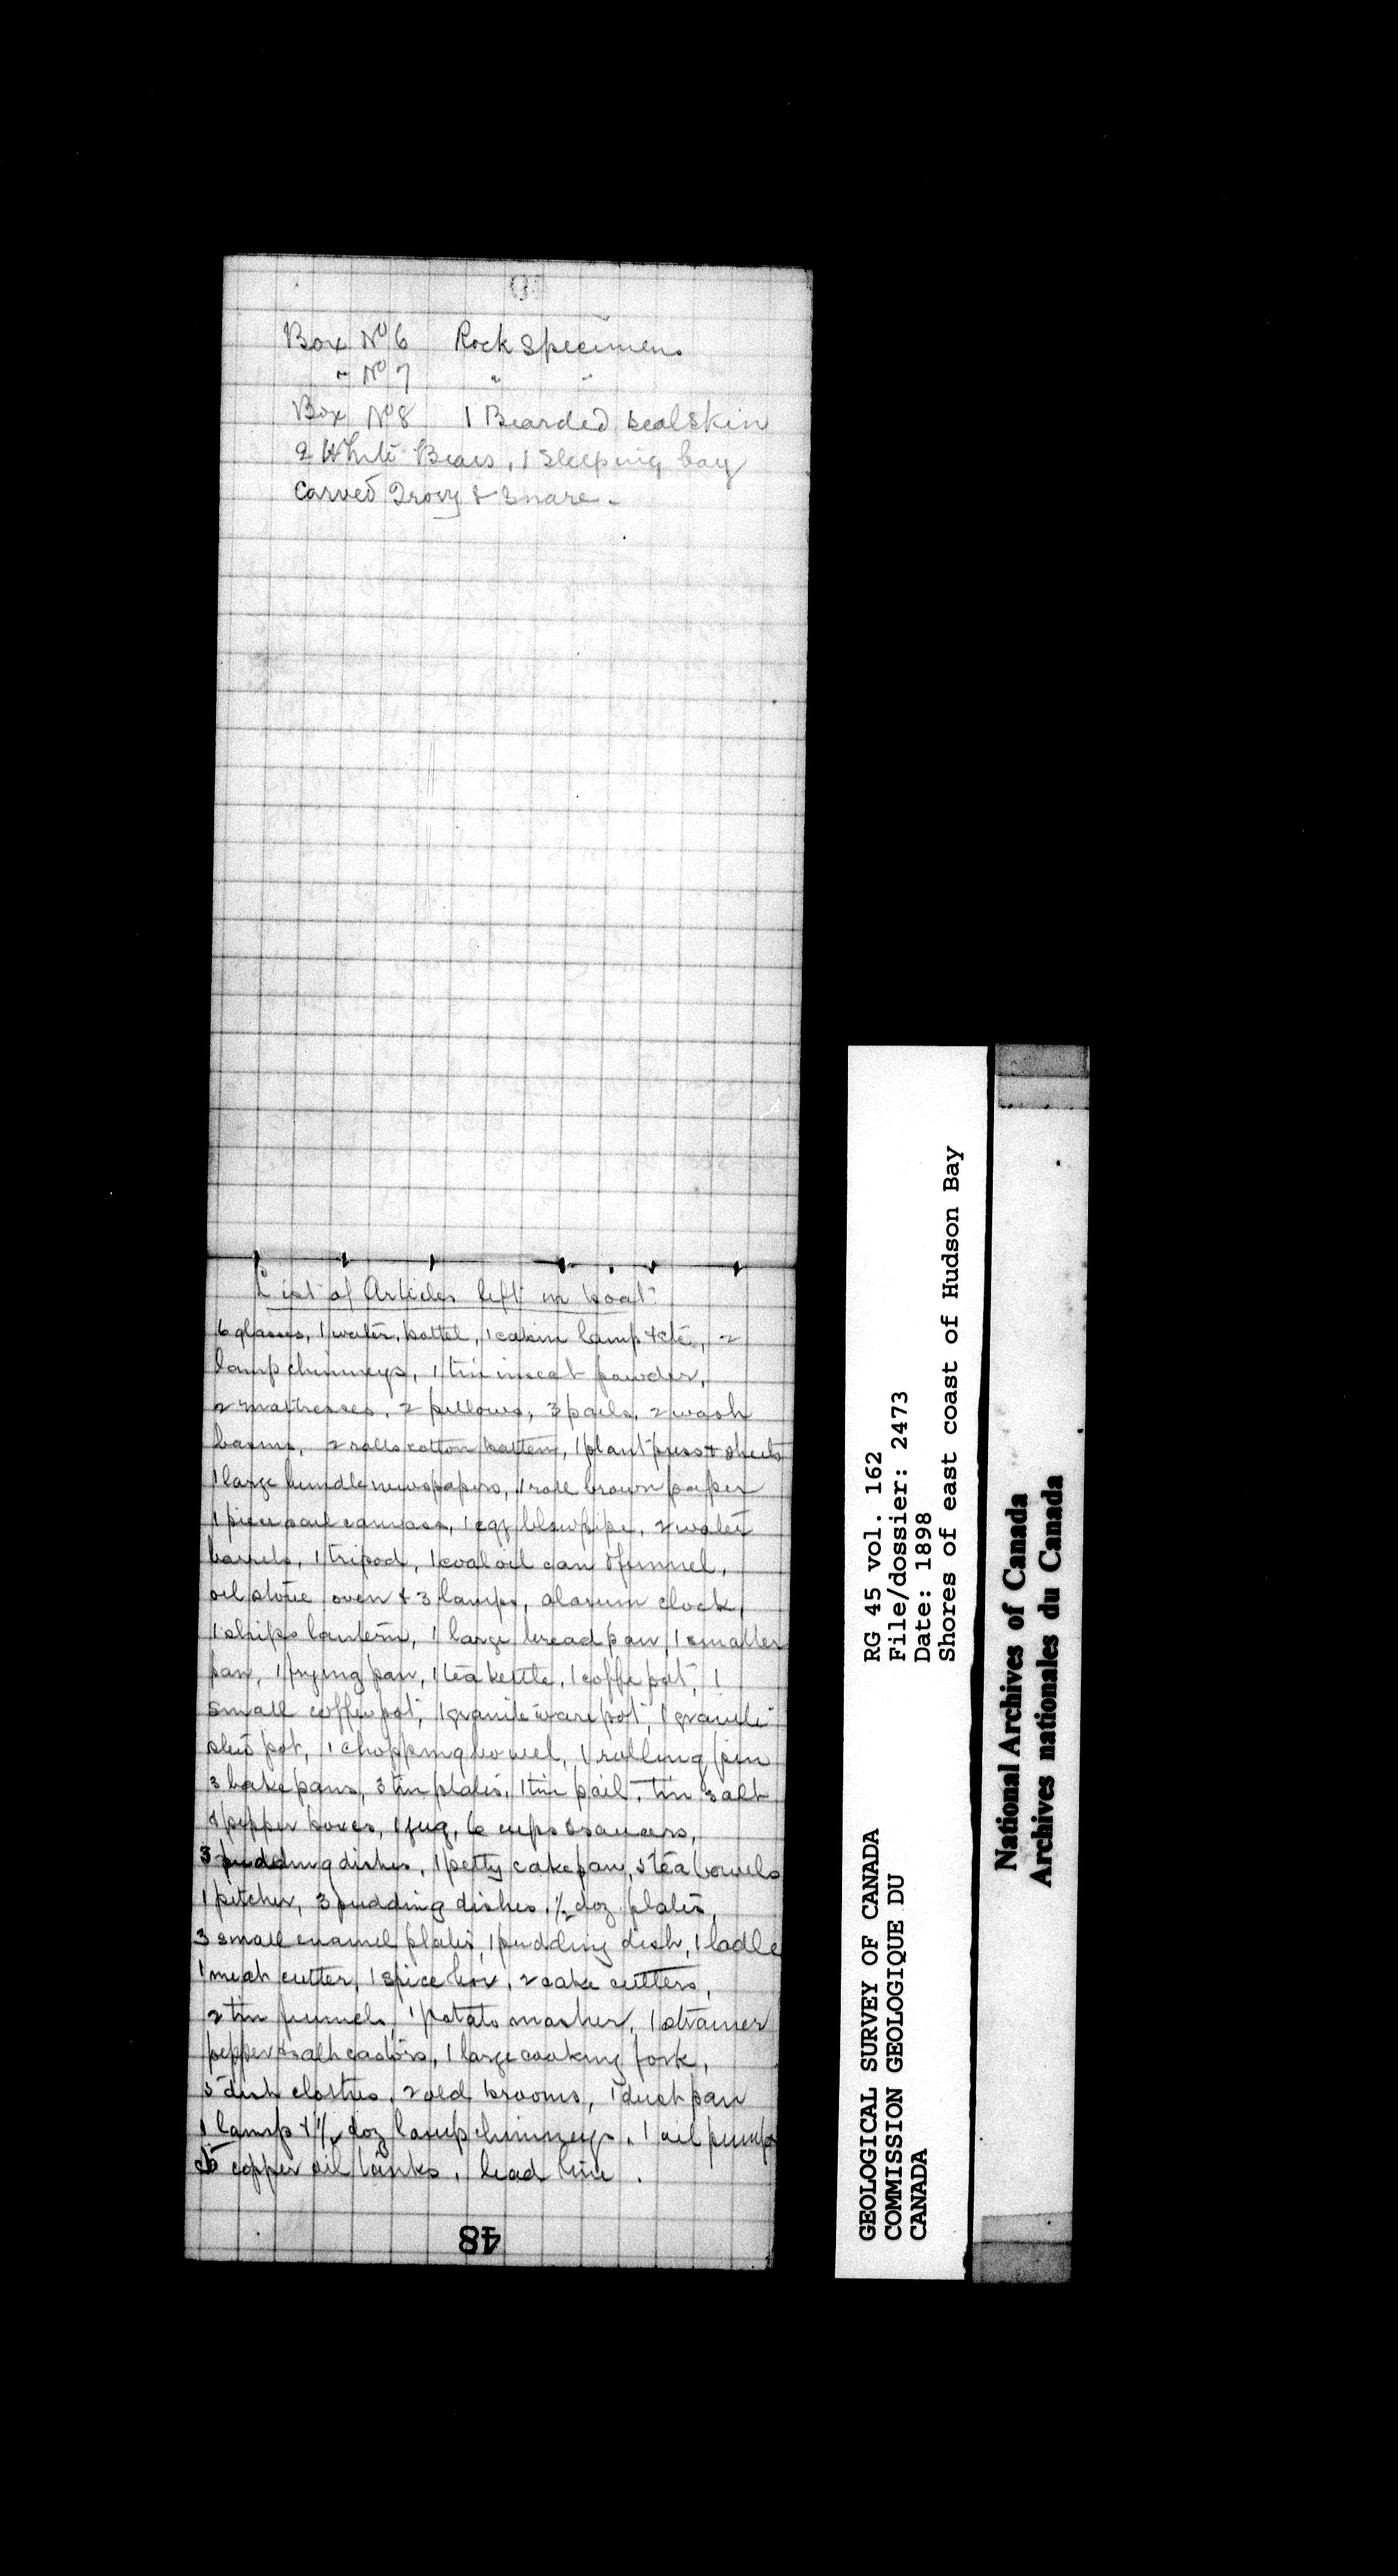 Box No 6 Rock Specimens
" No 7 " "
Box No 8 1 Bearded sealskin
2 White Bears, 1 Sleeping bag
Carved Ivory & Snare.
List of Articles left in boat.
6 glasses, 1 water bottel, 1 cabin lamp, 2
lamp chimneys, 1 tin insect powder,
2 mattresses, 2 pillows, 3 pails, 2 wash
basins, 2 rolls cotton batten, 1 plant press & sheets
1 large bundle newspapers, 1 roll brown paper
1 piece sail canvass, 1 blowpipe, 2 water
barrels, 1 tripod, 1 coal oil can & funnel,
oil stove oven & 3 lamps, alarum clock,
1 ships lantern, 1 large bread pan, 1 smaller
pan, 1 frying pan, 1 tea kettle, 1 coffe pot, 1
small coffee pot, 1 granite ware pot, 1 granite
stew pot, 1 chopping bowel, 1 rolling pin
3 bake pans, 3 tin plates, 1 tin pail, tin salt
& pepper boxes, 1 jug, 6 cups & saucers,
3 pudding dishes, 1 petty cake pan, 5 tea bowels
1 pitcher, 3 pudding dishes, ½ doz plates,
3 small enamel plates, 1 pudding dish, 1 ladle
1 meat cutter, 1 spice box, 2 cake cutters,
2 tin funnels, 1 potato masher, 1 strainer
pepper & salt castors, 1 large cooking fork,
5 dish clothes, 2 old brooms, 1 dust pan
1 lamp & ½ doz lamp chimneys, 1 oil pump
5 copper oil tanks, lead line.
48
GEOLOGICAL SURVEY OF CANADA
COMMISSION GEOLOGIQUE DU
CANADA
RG 45 vol. 162
File/dossier: 2473
Date: 1898
Shores of east coast of Hudson Bay
National Archives of Canada
Archives nationales du Canada